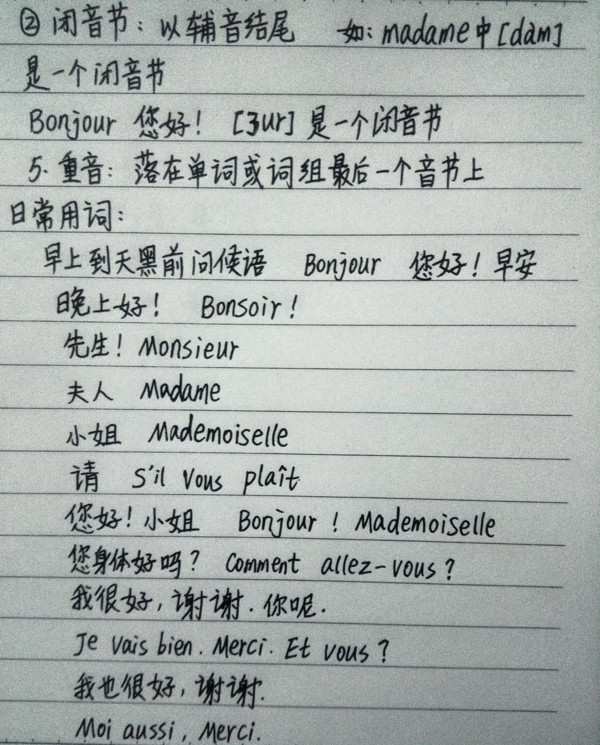 ② 闭音节：以辅音结尾 如：madame中[dàm]
是一个闭音节
Bonjour 您好！ [ʒur] 是一个闭音节
5. 重音：落在单词或词组最后一个音节上
日常用词：
早上到天黑前问候语 Bonjour 您好！早安
晚上好！ Bonsoir！
先生！Monsieur
夫人 Madame
小姐 Mademoiselle
请 S'il vous plaît
您好！小姐 Bonjour！Mademoiselle
您身体好吗？ Comment allez-vous？
我很好，谢谢．你呢．
Je vais bien. Merci. Et vous？
我也很好，谢谢．
Moi aussi, Merci.